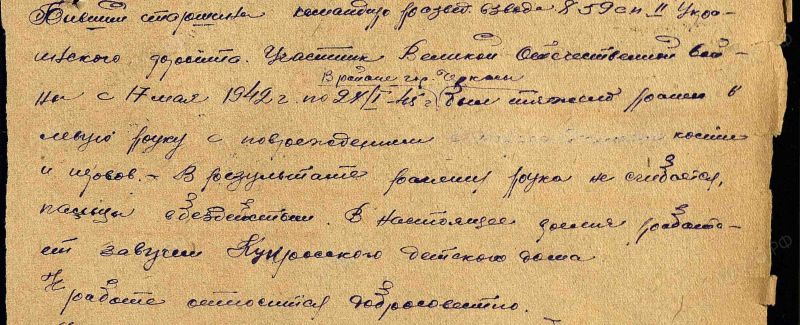 Бывший старшина командир развед. взвода 859 сп. II Укра-
инского фронта. Участник Великой Отечественной вой-
В районе гор. Черкасы
ны с 17 мая 1942 г. по 28/I-43 г. был тяжело ранен в
левую руку с повреждением кости
и нервов. – В результате ранения рука не сгибается,
пальцы в бездействии. В настоящее время работа-
ет завучем Купросского детского дома
К работе относится добросовестно.